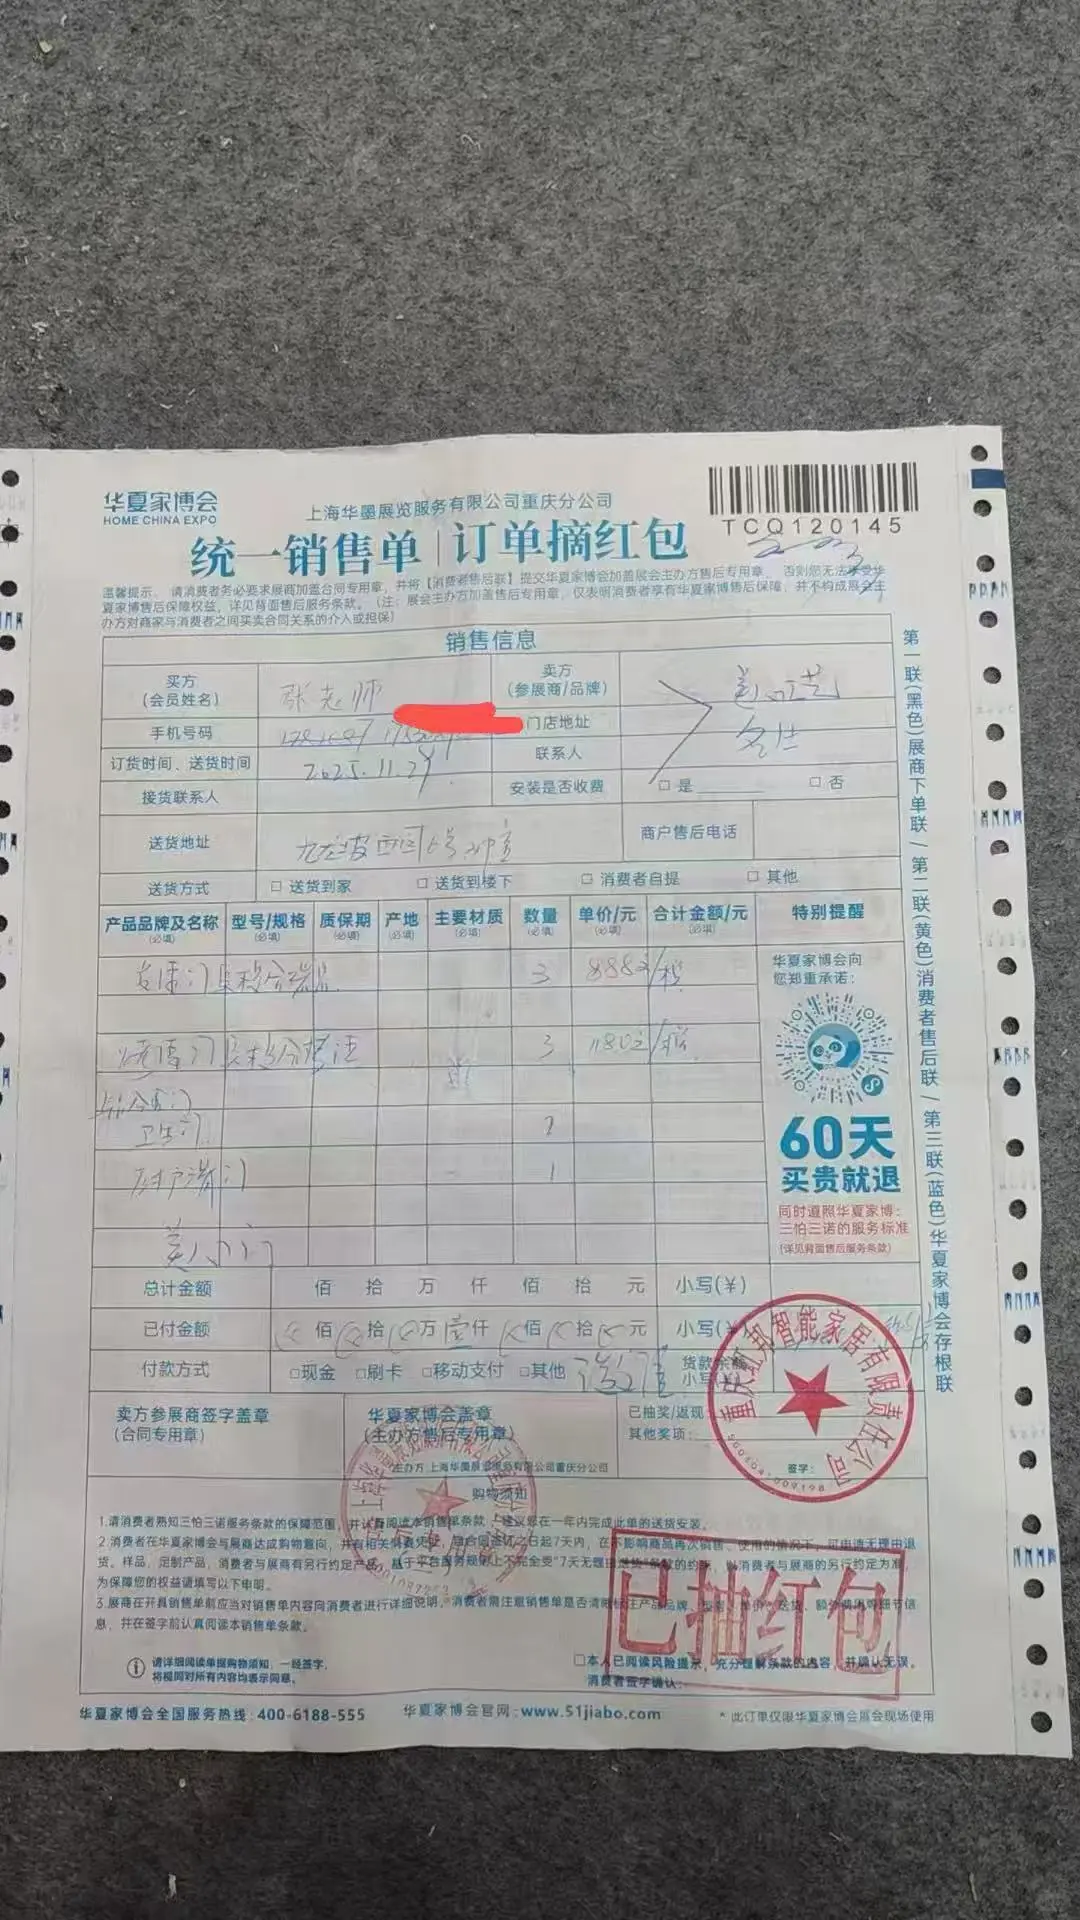 华夏家博会
HOME CHINA EXPO
上海华墨展览服务有限公司重庆分公司
TCQ120145
统一销售单 | 订单摘红包
温馨提示: 请消费者务必要求展商加盖合同专用章，并将【消费者售后联】提交华夏家博会加盖展会主办方售后专用章， 否则您无法享受华
夏家博售后保障权益，详见背面售后服务条款。(注: 展会主办方加盖售后专用章，仅表明消费者享有华夏家博售后保障，并不构成展会主
办方对商家与消费者之间买卖合同关系的介入或担保)
销售信息
买方
(会员姓名)
张老师
卖方
(参展商/品牌)
手机号码
门店地址
订货时间、送货时间
2025.11.29
联系人
接货联系人
安装是否收费
□ 是
□ 否
送货地址
商户售后电话
送货方式
□ 送货到家
□ 送货到楼下
□ 消费者自提
□ 其他
产品品牌及名称 (必填)
型号/规格 (必填)
质保期 (必填)
产地 (必填)
主要材质 (必填)
数量 (必填)
单价/元 (必填)
合计金额/元 (必填)
特别提醒
3 888元/樘
3 1180元/樘
卫生门 2
1
华夏家博会向
您郑重承诺:
60天
买贵就退
同时遵照华夏家博:
三怕三诺的服务标准
(详见背面售后服务条款)
总计金额
佰 拾 万 仟 佰 拾 元
小写(¥)
已付金额
佰 拾 万 壹仟 佰 拾 元
小写(¥)
付款方式
□现金 □刷卡 □移动支付 □其他
货款余额
小写(¥)
卖方参展商签字盖章
(合同专用章)
华夏家博会盖章
(主办方售后专用章)
主办方 上海华墨展览服务有限公司重庆分公司
已抽奖/返现:
其他奖项:
签字:
重庆 邦智能家居有限责任公司
购物须知
1.请消费者熟知三怕三诺服务条款的保障范围，并认真阅读本销售单条款，建议您在一年内完成此单的送货安装。
2.消费者在华夏家博会与展商达成购物意向，并有相关消费凭证，自合同签订之日起7天内，在不影响商品再次销售、使用的情况下，可申请无理由退
货。样品，定制产品，消费者与展商有另行约定产品，基于平台服务规则上不完全受“7天无理由退货”条款的约束，以消费者与展商的另行约定为准，
为保障您的权益请填写以下申明。
3.展商在开具销售单前应当对销售单内容向消费者进行详细说明，消费者需注意销售单是否清晰标注产品品牌、型号、单价、送货、额外费用等细节信
息，并在签字前认真阅读本销售单条款。
已抽红包
请详细阅读单据购物须知，一经签字，
将视同对所有内容均表示同意。
□本人已阅读风险提示，充分理解条款的内容，并确认无误。
消费者签字确认:
华夏家博会全国服务热线: 400-6188-555
华夏家博会官网: www.51jiabo.com
* 此订单仅限华夏家博会展会现场使用
第一联(黑色)展商下单联 / 第二联(黄色)消费者售后联 / 第三联(蓝色)华夏家博会存根联